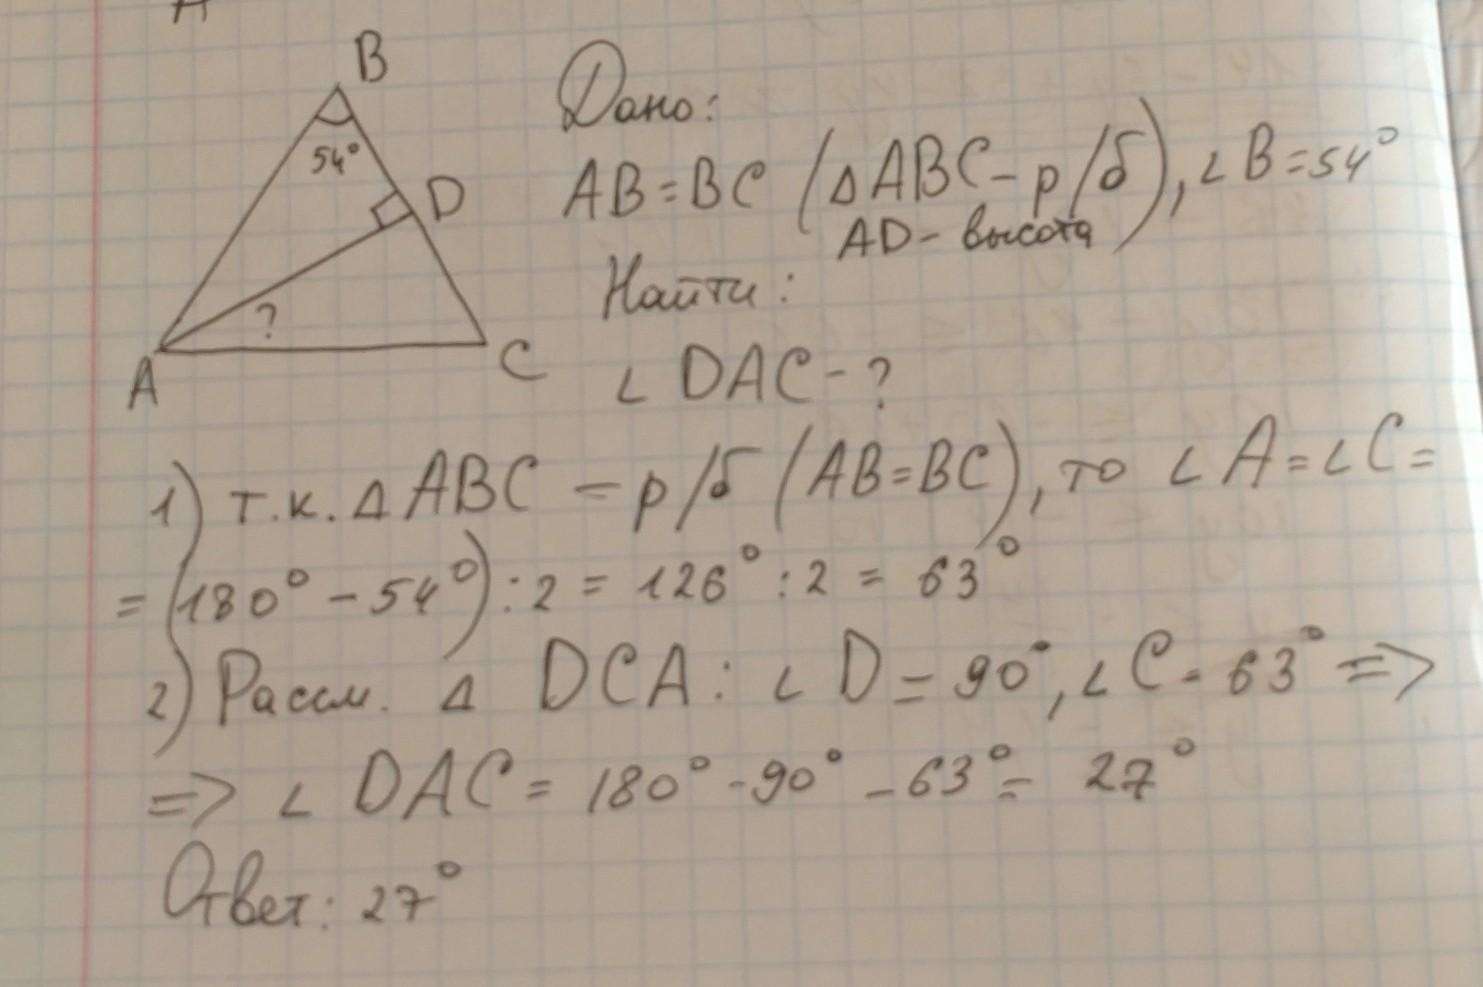 B
54°
D
?
A
C
Дано:
AB=BC (ΔABC-р/б), ∠B=54°
AD- высота
Найти:
∠DAC-?
1) т.к. ΔABC - р/б (AB=BC), то ∠A=∠C=
=(180°-54°):2=126°:2=63°
2) Рассм. Δ DCA: ∠D=90°, ∠C-63° =>
=> ∠DAC=180°-90°-63°=27°
Ответ: 27°